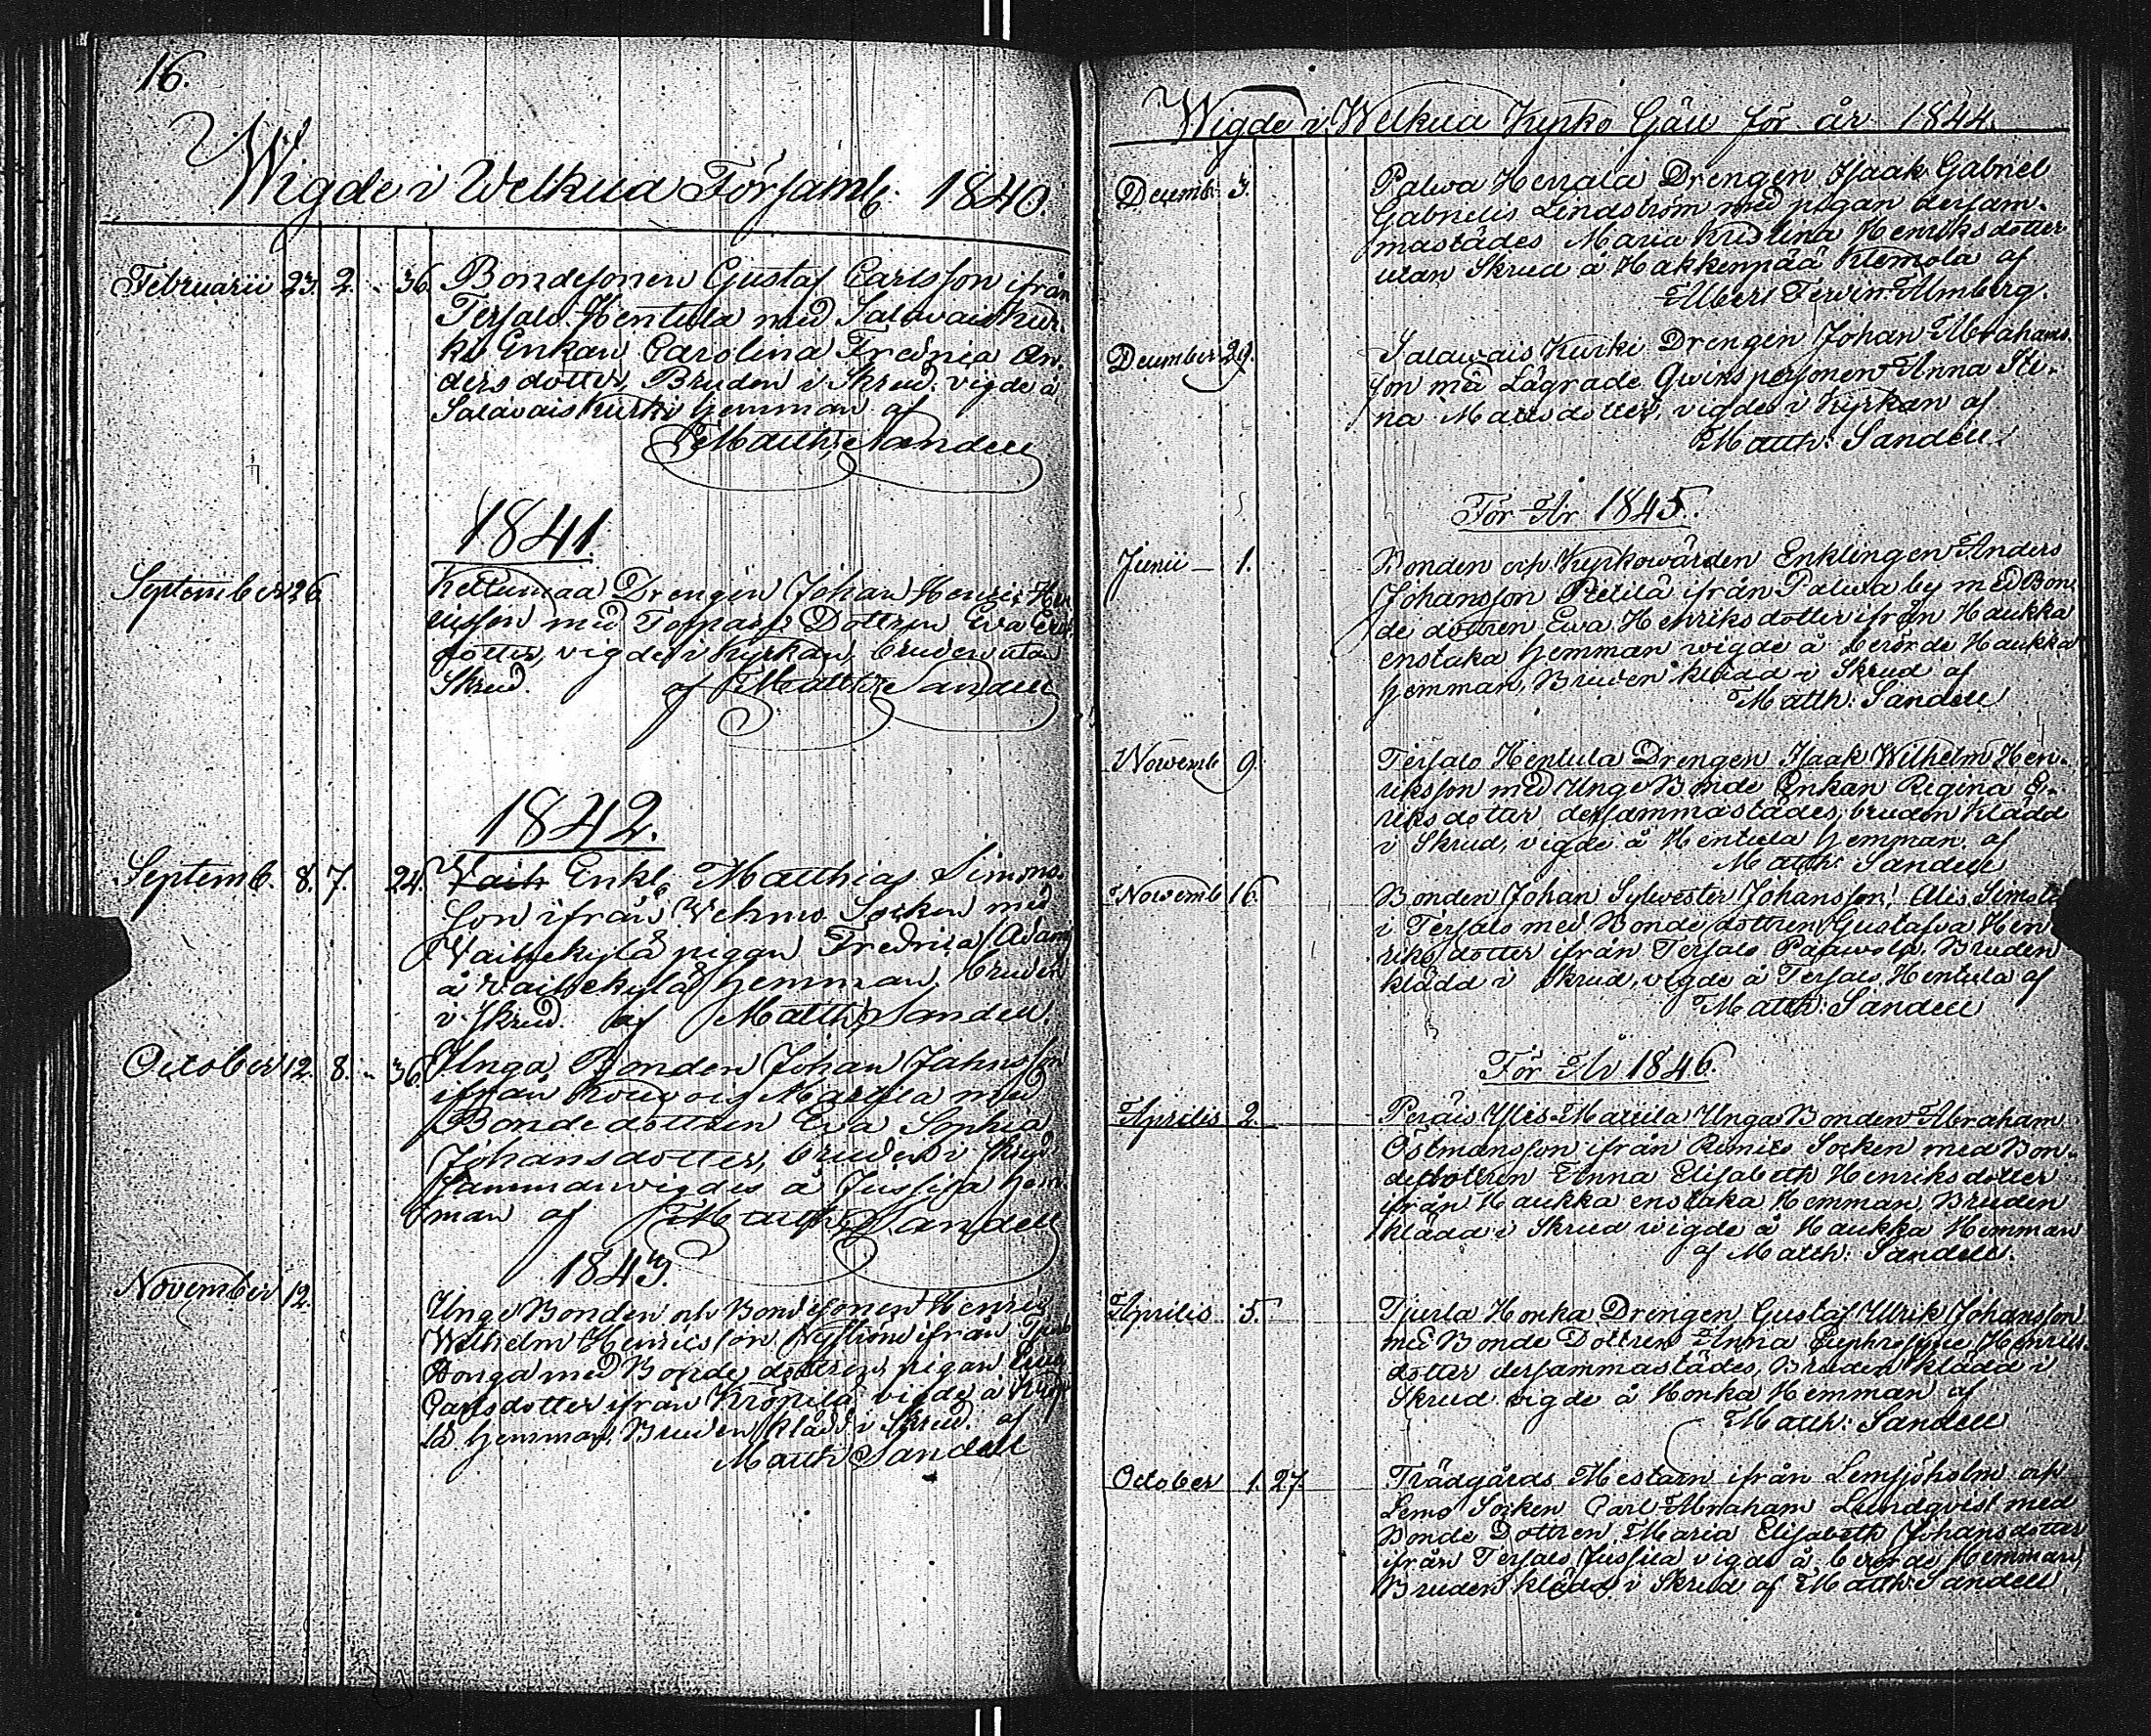 16.
Wigde i Welkua Församl. 1840.
Februarii 23. 2. - 36. Bondesonen Gustaf Carlsson ifrån
Tersalo Hentula med Salavais Kur-
ki Enkan Carolina Fredrica An-
dersdotter, Bruden i Skrud. vigde å
Salavais Kurki hemman af
Matth: Sandell
1841.
September 26. Kettumaa Drengen Johan Henric
med Dottren Eva
dotter, vigde i Kyrkan, bruden utan
Skrud. af Matth: Sandell
1842.
Septemb. 8. 7. 24. Enkl. Matthias Simons-
son ifrån Vehmo Socken med
Vaihekylä pigan Fredrica Adams
å Vaihekylä hemman, bruden
i Skrud. af Matth: Sandell.
October 12. 8. - 36. Unga Bonden Johan Johansson
ifrån Martila med
Bondedottren Eva Sophia
Johansdotter, bruden i Skrud
sammanvigdes å Jussila hem-
man af Matth: Sandell
1843.
November 12. Unge Bonden och Bondesonen Henric
Wilhelm Henricsson Nyström ifrån
Honga med Bonde dottren, pigan
Carlsdotter ifrån Kröpilä vigde å Kröpi-
lä hemman, Bruden klädd i Skrud. af
Matth: Sandell
Wigde i Welkua Kyrko Gäll för år 1844.
Decemb: 3. Palwa Herrala Drengen Isaak Gabriel
Gabrielis Lindström med pigan dersam-
mastädes Maria Kristina Henriksdotter
utan Skrud å Hakkenpää Klemola af
Albert Ferdin: Almberg.
December 29. Salawais Kurki Drengen Johan Abrahams-
son med Lägrade Qwinspersonen Anna Sti-
na Mattsdotter, vigde i Kyrkan af
Matth: Sandell.
För År 1845.
Junii - 1. Bonden och Kyrkowärden Enklingen Anders
Johansson ifrån Palwa by med Bon-
de dottren Ewa Henriksdotter ifrån Haukka
enstaka hemman wigde å berörde Haukka
hemman, Bruden klädd i Skrud af
Matth: Sandell
Novemb 9. Tersalo Hentula Drengen Isaak Wilhelm Hen-
riksson med Unge Bonde Enkan Regina E-
riksdotter dersammastädes, bruden klädd
i Skrud, vigde å Hentula hemman af
Matth: Sandell
Novemb 16. Bonden Johan Sylvester Johansson
i Tersalo med Bonde dottren Gustafva Hen-
riksdotter ifrån Tersalo Bruden
klädd i Skrud, vigde å Tersalo Hentula af
Matth: Sandell
För År 1846.
Aprilis 2. Unga Bonden Abraham
Östmansson ifrån Rimito Socken med Bon-
dedottren Anna Elisabeth Henriksdotter
ifrån Haukka enstaka Hemman, Bruden
klädd i Skrud wigde å Haukka Hemman
af Matth: Sandell.
Aprilis 5. Tjurla Honka Drengen Gustaf Ulrik Johansson
med Bonde Dottren Anna Euphrosyne Henriks-
dotter dersammastädes, Bruden klädd i
Skrud vigde å Honka Hemman af
Matth: Sandell
October 1. 27. Trädgårds Mestarn ifrån Lemsjöholm och
Lemo Socken Carl Abraham Lundqvist med
Bonde Dottren Maria Elisabeth Johansdotter
ifrån Tersalo Jussila vigde å berörde Hemman,
Bruden klädd i Skrud af Matth: Sandell.